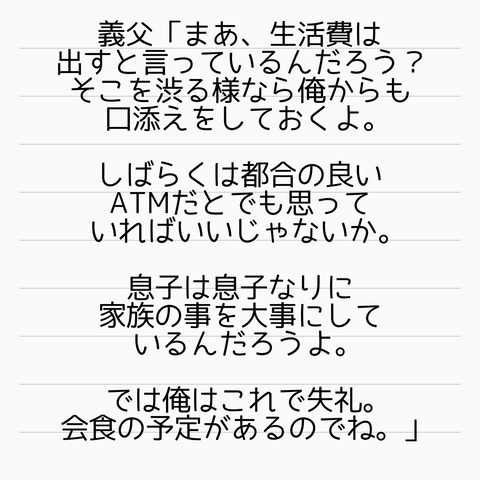 義父「まあ、生活費は
出すと言っているんだろう？
そこを渋る様なら俺からも
口添えをしておくよ。
しばらくは都合の良い
ATMだとでも思って
いればいいじゃないか。
息子は息子なりに
家族の事を大事にして
いるんだろうよ。
では俺はこれで失礼。
会食の予定があるのでね。」